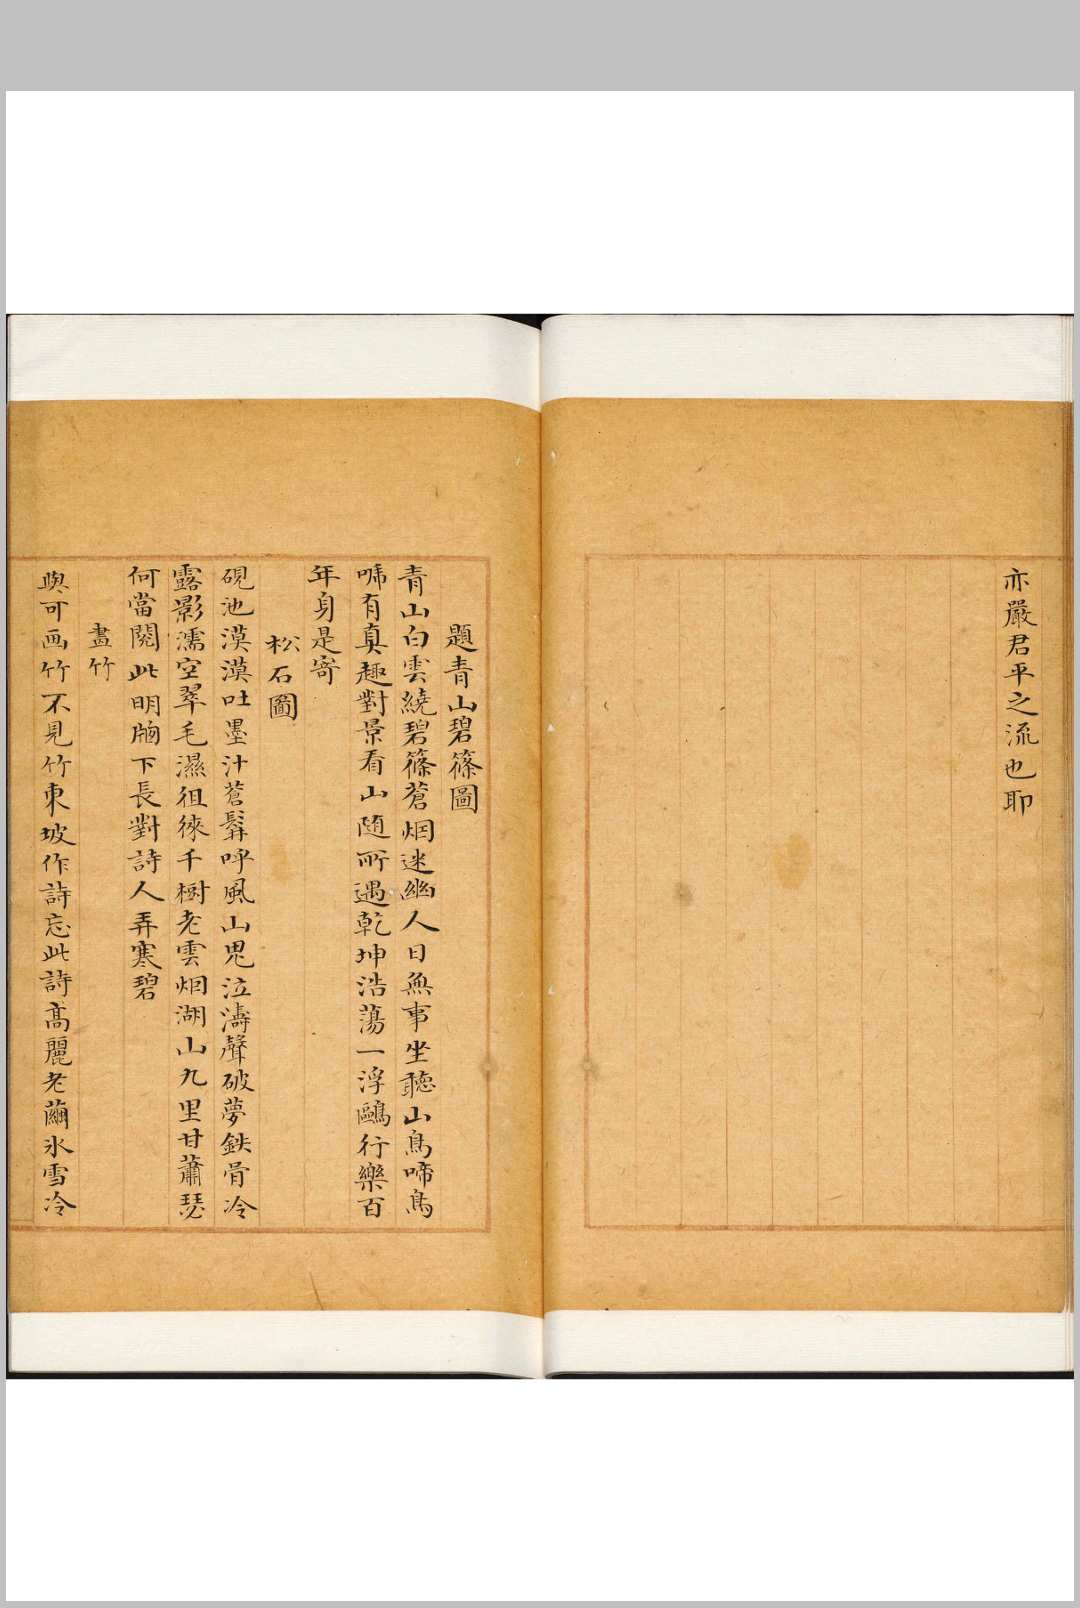 亦嚴君平之流也耶
題青山碧篠圖
青山白雲繞碧篠蒼烟迷幽人日無事坐聽山鳥啼鳥
啼有真趣對景看山随所遇乾坤浩蕩一浮鷗行樂百
年身是寄
松石圖
硯池漠漠吐墨汁蒼髯呼風山鬼泣濤聲破夢鉄骨冷
露影濡空翠毛濕徂徠千樹老雲烟湖山九里甘蕭瑟
何當閱此明牕下長對詩人弄寒碧
畫竹
與可画竹不見竹東坡作詩忘此詩高麗老繭氷雪冷